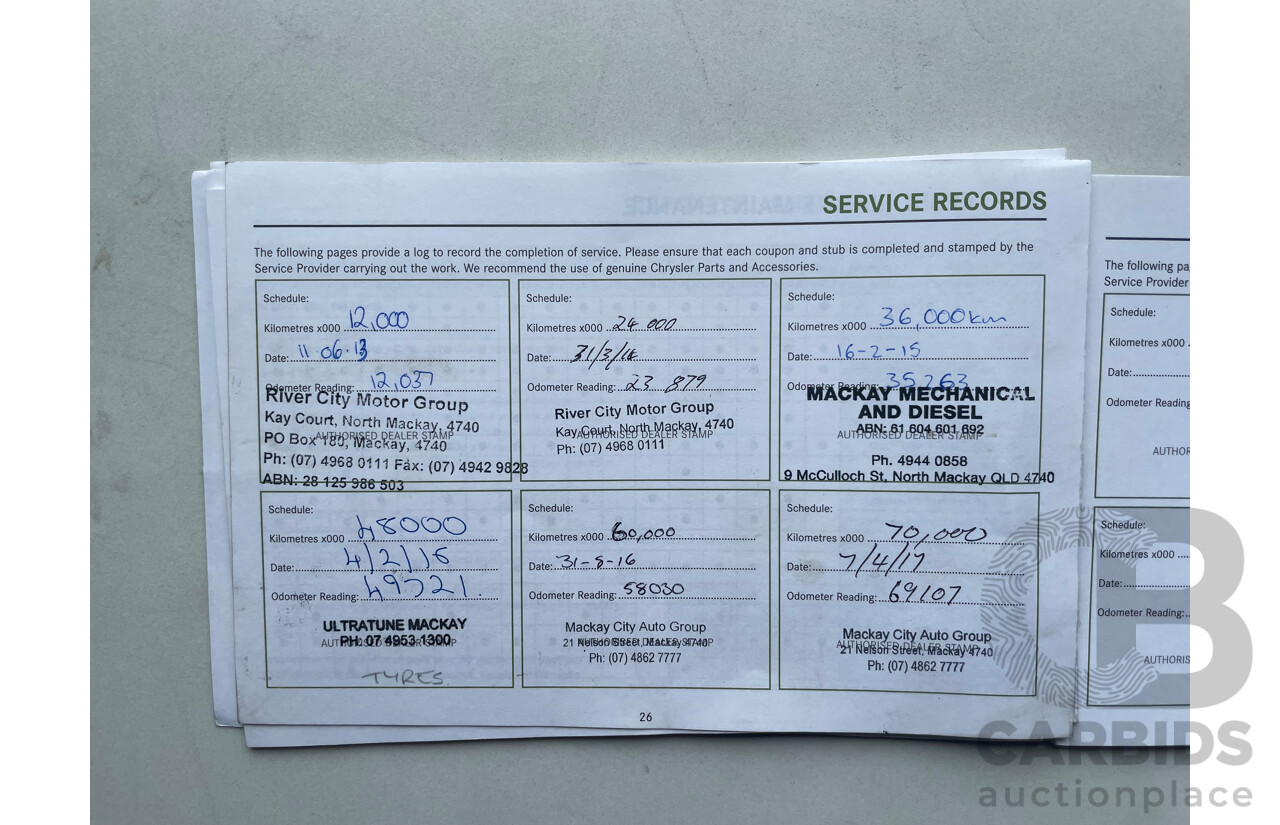 SERVICE RECORDS
The following pages provide a log to record the completion of service. Please ensure that each coupon and stub is completed and stamped by the
Service Provider carrying out the work. We recommend the use of genuine Chrysler Parts and Accessories.
Schedule:
Kilometres x000 12,000
Date: 11.06.13
Odometer Reading: 12,037
River City Motor Group
Kay Court, North Mackay, 4740
AUTHORISED DEALER STAMP
PO Box 185, Mackay, 4740
Ph: (07) 4968 0111 Fax: (07) 4942 9828
ABN: 28 125 986 503
Schedule:
Kilometres x000 24 000
Date: 31/3/14
Odometer Reading: 23 879
River City Motor Group
Kay Court, North Mackay, 4740
AUTHORISED DEALER STAMP
Ph: (07) 4968 0111
Schedule:
Kilometres x000 36,000km
Date: 16-2-15
Odometer Reading: 35263
MACKAY MECHANICAL
AND DIESEL
ABN: 61 604 601 692
AUTHORISED DEALER STAMP
Ph. 4944 0858
9 McCulloch St, North Mackay QLD 4740
Schedule:
Kilometres x000 48000
Date: 4/2/16
Odometer Reading: 49321.
ULTRATUNE MACKAY
PH: 07 4953 1300
AUTHORISED DEALER STAMP
TYRES
Schedule:
Kilometres x000 60,000
Date: 31-8-16
Odometer Reading: 58030
Mackay City Auto Group
21 Nelson Street, Mackay 4740
AUTHORISED DEALER STAMP
Ph: (07) 4862 7777
Schedule:
Kilometres x000 70,000
Date: 7/4/17
Odometer Reading: 69107
Mackay City Auto Group
AUTHORISED DEALER STAMP
21 Nelson Street, Mackay 4740
Ph: (07) 4862 7777
26
The following pa
Service Provider
Schedule:
Kilometres x000
Date:
Odometer Reading
AUTHOR
Schedule:
Kilometres x000
Date:
Odometer Reading:
AUTHORIS
CARBIDS
auctionplace